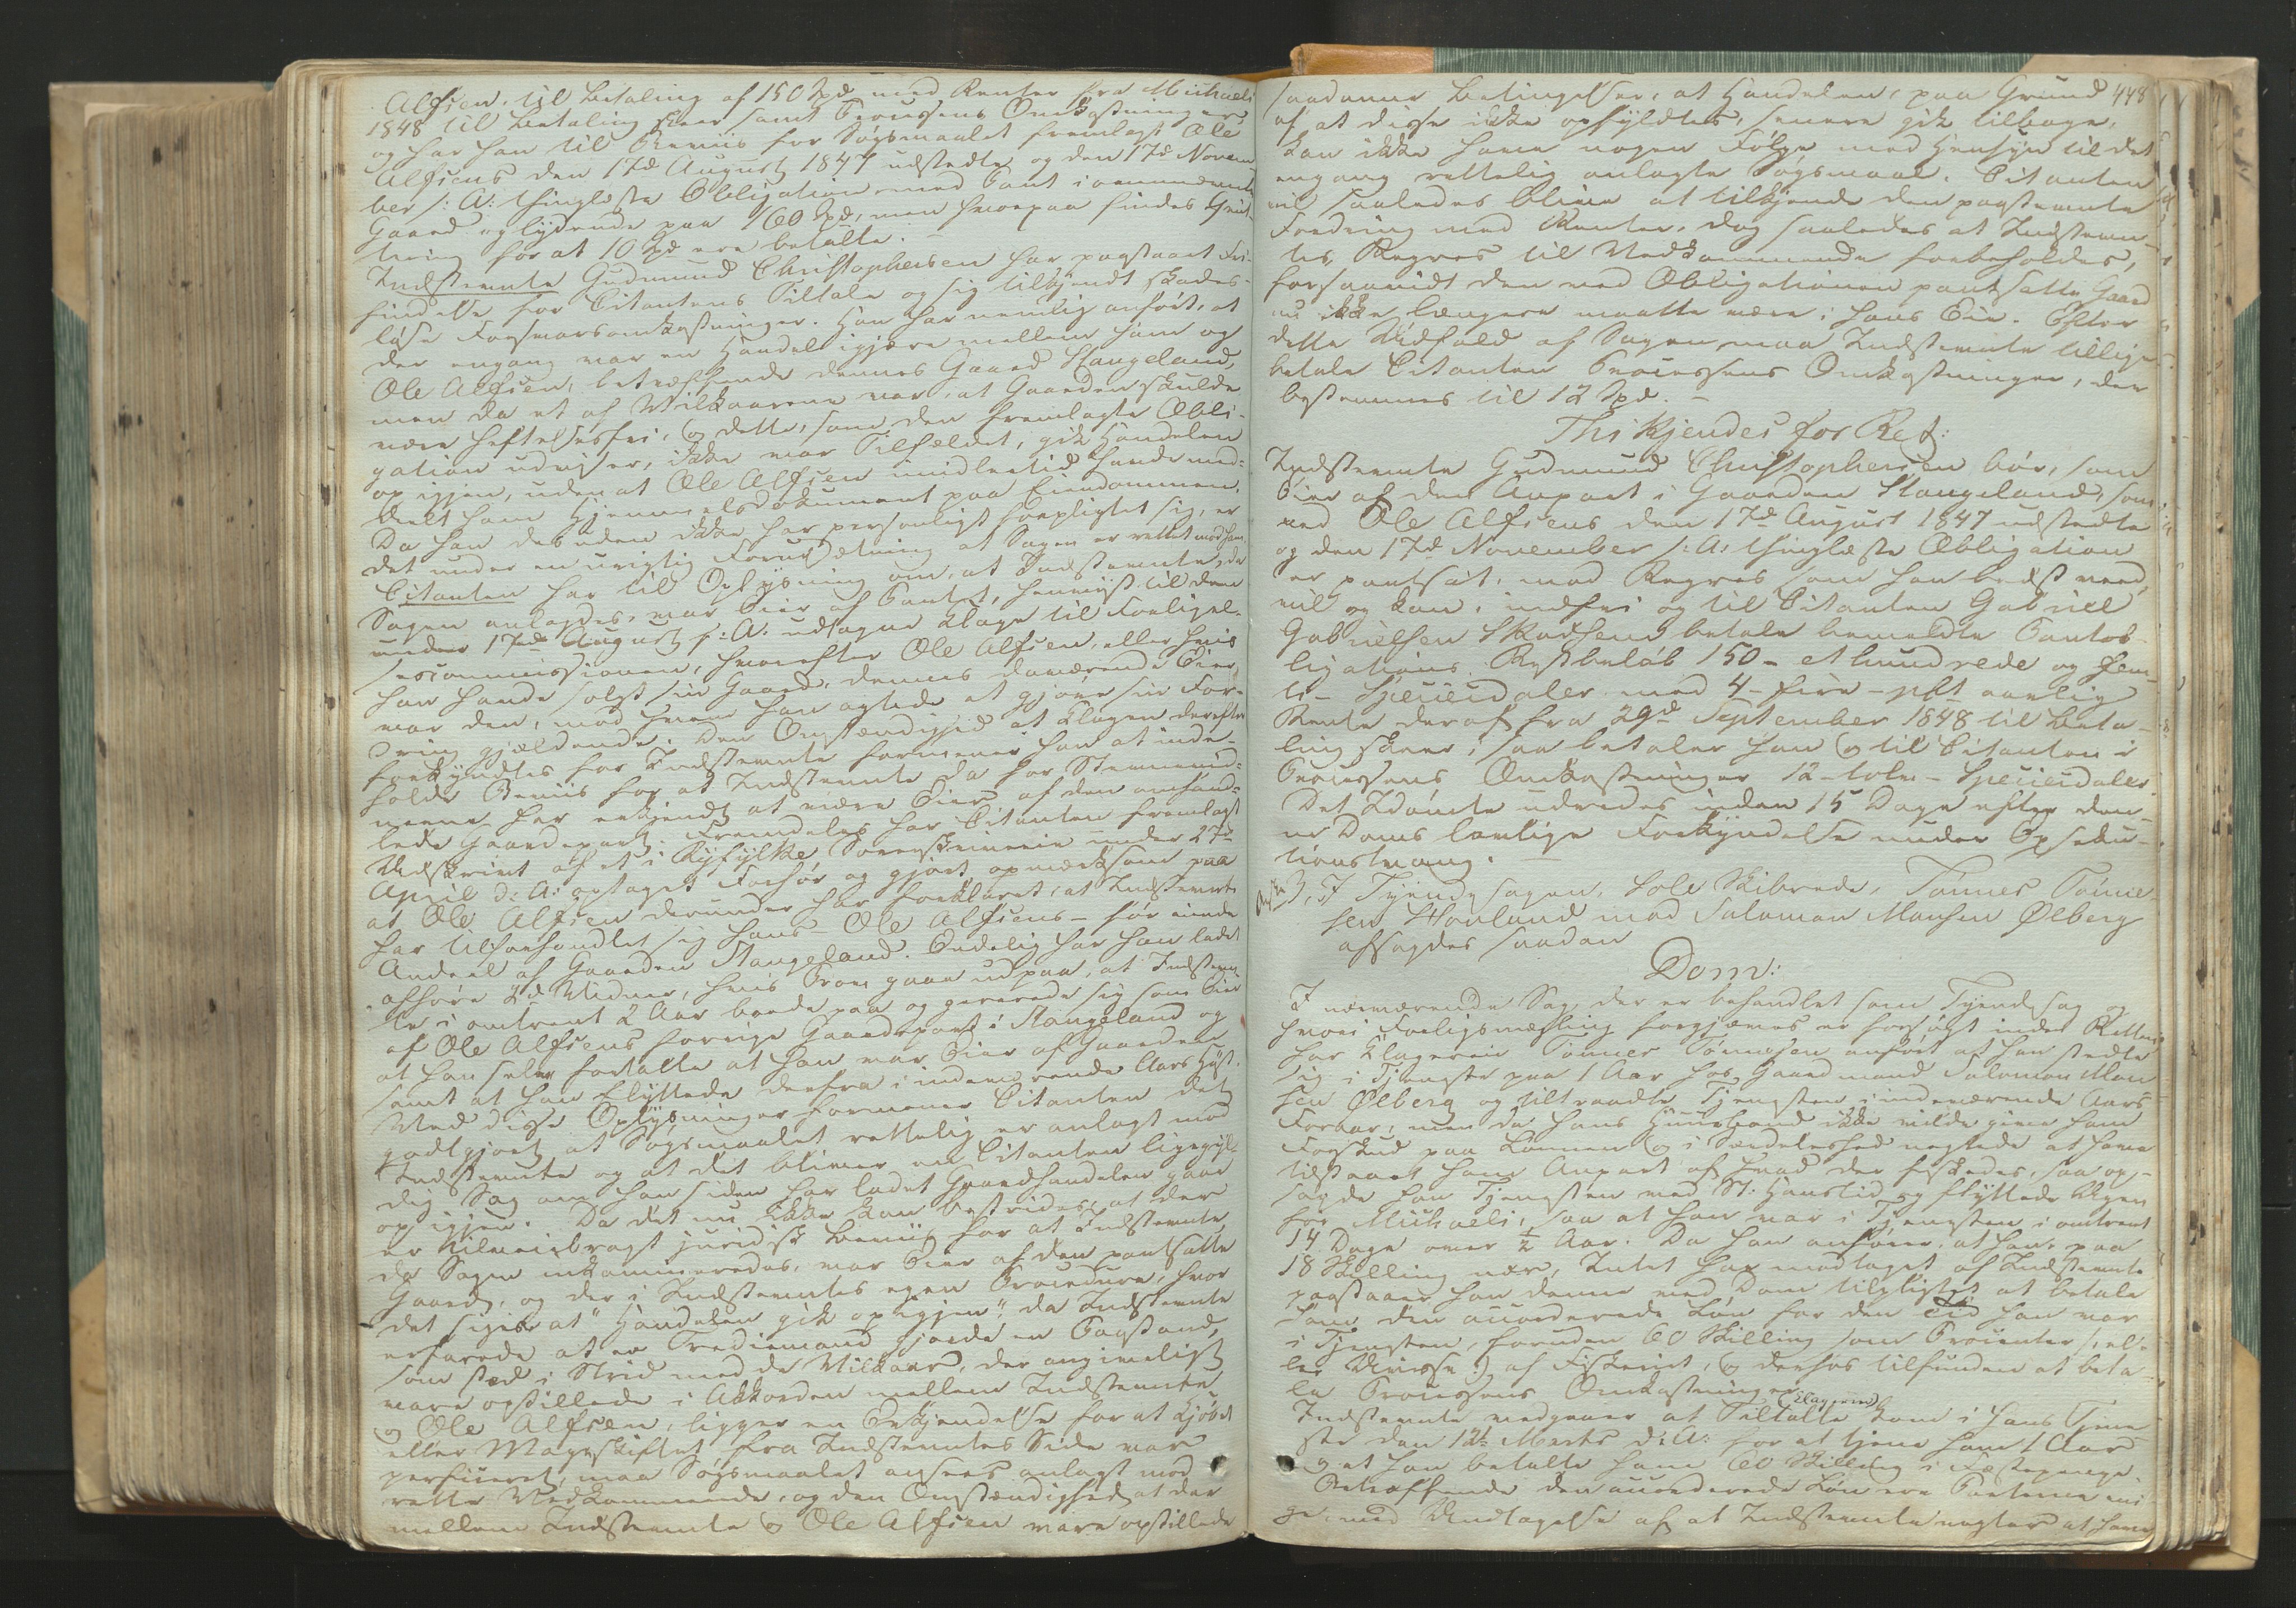 Alfsen, til Betaling af 150 Spd med Renter fra Michaeli
1848 til Betaling skeer samt Processens Omkostninger
og har han til Beviis for Søgsmaalet fremlagt Ole
Alfsens den 17de August 1847 udstedte og den 17de Novem
ber s: A: thinglæste Obligation med Pant i
Gaard og lydende paa 160 Spd, men hvorpaa findes Qvit-
tering for at 10 Spd ere betalte. –
Indstevnte Gudmund Christophersen har paastaaet Fri-
findelse for Citantens Tiltale og sig tilkjendt skades-
løse Forsvarsomkostninger. Han har nemlig anført, at
der engang var en Handel igjære mellem ham og
Ole Alfsen, betræffende dennes Gaard Stangeland,
men da et af Vilkaarene var, at Gaarden skulde
være heftelsesfri, og dette, som den fremlagte Obli-
gation udviser, ikke var Tilfældet, gik Handelen
op igjen, uden at Ole Alfsen imidlertid havde med-
deelt ham Hjemmelsdokument paa Eiendommen.
Da han desuden ikke har personligt forpligtet sig, er
det under en urigtig Forudsætning at Sagen er rettet mod ham.
Citanten har til Oplysning om, at Indstevnte, da
Sagen anlagdes, var Eier af Pantet, henviist til den
under 17nde August f: A: udtagne Klage til Forligel-
sescommissionen, hvorefter Ole Alfsen, eller hvis
han havde solgt sin Gaard, dennes daværende Eier
var den, mod hvem han agtede at gjøre sin For-
dring gjældende. Den Omstændighed at Klagen derefter
forkyndtes for Indstevnte formener han at inde-
holde Beviis for at Indstevnte da for Stevnevid-
nerne har erkjendt at være Eier af den omhand-
lede Gaardepart. Fremdeles har Citanten fremlagt
Udskrivt af et i Ryfylke Sorenskriverie under 27de
April d: A: optaget Forhør og gjort opmærksom paa
at Ole Alfsen derunder har forklaret, at Indstevnte
har tilforhandlet sig hans – Ole Alfsens – før eiende
Andeel af Gaarden Stangeland. Endelig har han ladet
afhøre 2de Vidner, hvis Prov gaae ud paa, at Indstevn
te i omtrent 2 Aar boede paa og gererede sig som Eier
af Ole Alfsens forrige Gaardepart i Stangeland og
at han selv fortalte at han var Eier af Gaarden
samt at han flyttede derfra i indeværende Aars Høst.
Ved disse Oplysninger formener Citanten det
godtgjort at Søgsmaalet rettelig er anlagt mod
Indstevnte og at det bliver en Citanten ligegyl-
dig Sag om han siden har ladet Gaardhandelen gaae
op igjen. Da det nu ikke kan bestrides, at der
er tilveiebragt juridisk Beviis for at Indstevnte,
da Sagen inkamineredes, var Eier af den pantsatte
Gaard, og der i Indstevntes egen Procedure, hvor
det siges at "Handelen gik op igjen", da Indstevnte
erfarede at en Trediemand gjorde en Paastand,
som stod i Strid med de Vilkaar, der angiveligt
vare opstillede i Akkorden mellem Indstevnte
og Ole Alfsen, ligger en Erkjendelse for at Kjøbet
eller Mageskiftet fra Indstevntes Side var
perficeret, maa Søgsmaalet ansees anlagt mod
rette Vedkommende, og den Omstændighed at der
mellem Indstevnte og Ole Alfsen vare opstillede
448
saadanne Betingelser, at Handelen, paa Grund
af at disse ikke opfyldtes, senere gik tilbage,
kan ikke have nogen Følge med Hensyn til det
engang rettelig anlagte Søgsmaal. Citanten
vil saaledes blive at tilkjende den paastevnte
Fordring med Renter, dog saaledes at Indstevn-
tes Regres til Vedkommende forbeholdes,
forsaavidt den ved Obligationen pantsatte Gaard
nu ikke længere maatte være i hans Eie. Efter
dette Udfald af Sagen maa Indstevnte tillige
betale Citanten Processens Omkostninger, der
bestemmes til 12 Spd. –
Thi kjendes for Ret:
Indstevnte Gudmund Christophersen bør, som
Eier af den Anpart i Gaarden Stangeland, som
ved Ole Alfsens den 17de August 1847 udstedte
og den 17de November s: A: thinglæste Obligation
er pantsat, mod Regres som han bedst veed,
vil og kan, indfri og til Citanten Gabriel
Gabrielsen Skadsem betale bemeldte Pantob-
ligations Restbeløb 150 – et hundrede og fem-
ti – Speciedaler med 4 – fire – pCt aarlig
Rente deraf fra 29de September 1848 til Beta-
ling skeer; saa betaler han og til Citanten i
Processens Omkostninger 12 – tolv – Speciedaler.
Det Idømte udredes inden 15 Dage efter den-
ne Doms lovlige Forkyndelse under Exseku-
tionstvang. –
3, I Tjendesagen, Sole Skibrede, Tønnes Tønne-
sen Hauland mod Salamon Monsen Ølberg
afsagdes saadan
Dom:
I nærværende Sag der er behandlet som Tjendesag og
hvori Forligsmægling forgjæves er forsøgt inden Retten,
har Klageren Tønnes Tønnesen anført at han stedte
sig i Tjeneste paa 1 Aar hos Gaardmand Salomon Mon
sen Ølberg og tiltraadte Tjenesten i indeværende Aars
Foraar; men da hans Huusbond ikke vilde give ham
Forskud paa Lønnen og i Særdeleshed negtede at have
tilstaaet ham Anpart af hvad der fiskedes, saa op-
sagde han Tjenesten ved St: Hanstid og flyttede Ugen
før Michaeli, saa at han var i Tjenesten i omtrent
14 Dage over ½ Aar. Da han anfører, at han, paa
18 Skilling nær, Intet har modtaget af Indstevnte
paastaaer han denne ved Dom tilpligtet at betale
ham den accorderede Løn for den Tid han var
i Tjenesten, foruden 60 Skilling som Procenter (: el-
ler Uvisse :) af Fiskeriet, og derhos tilfunden at beta-
le Processens Omkostninger.
Indstevnte vedgaaer at Tiltalte (Klageren) kom i hans Tjene-
ste den 12te Marts d: A: for at tjene ham 1 Aar
og at han betalte ham 60 Skilling i Fæstepenge.
Betræffende den accorderede Løn ere Parterne eni-
ge, med Undtagelse af at Indstevnte negter at have